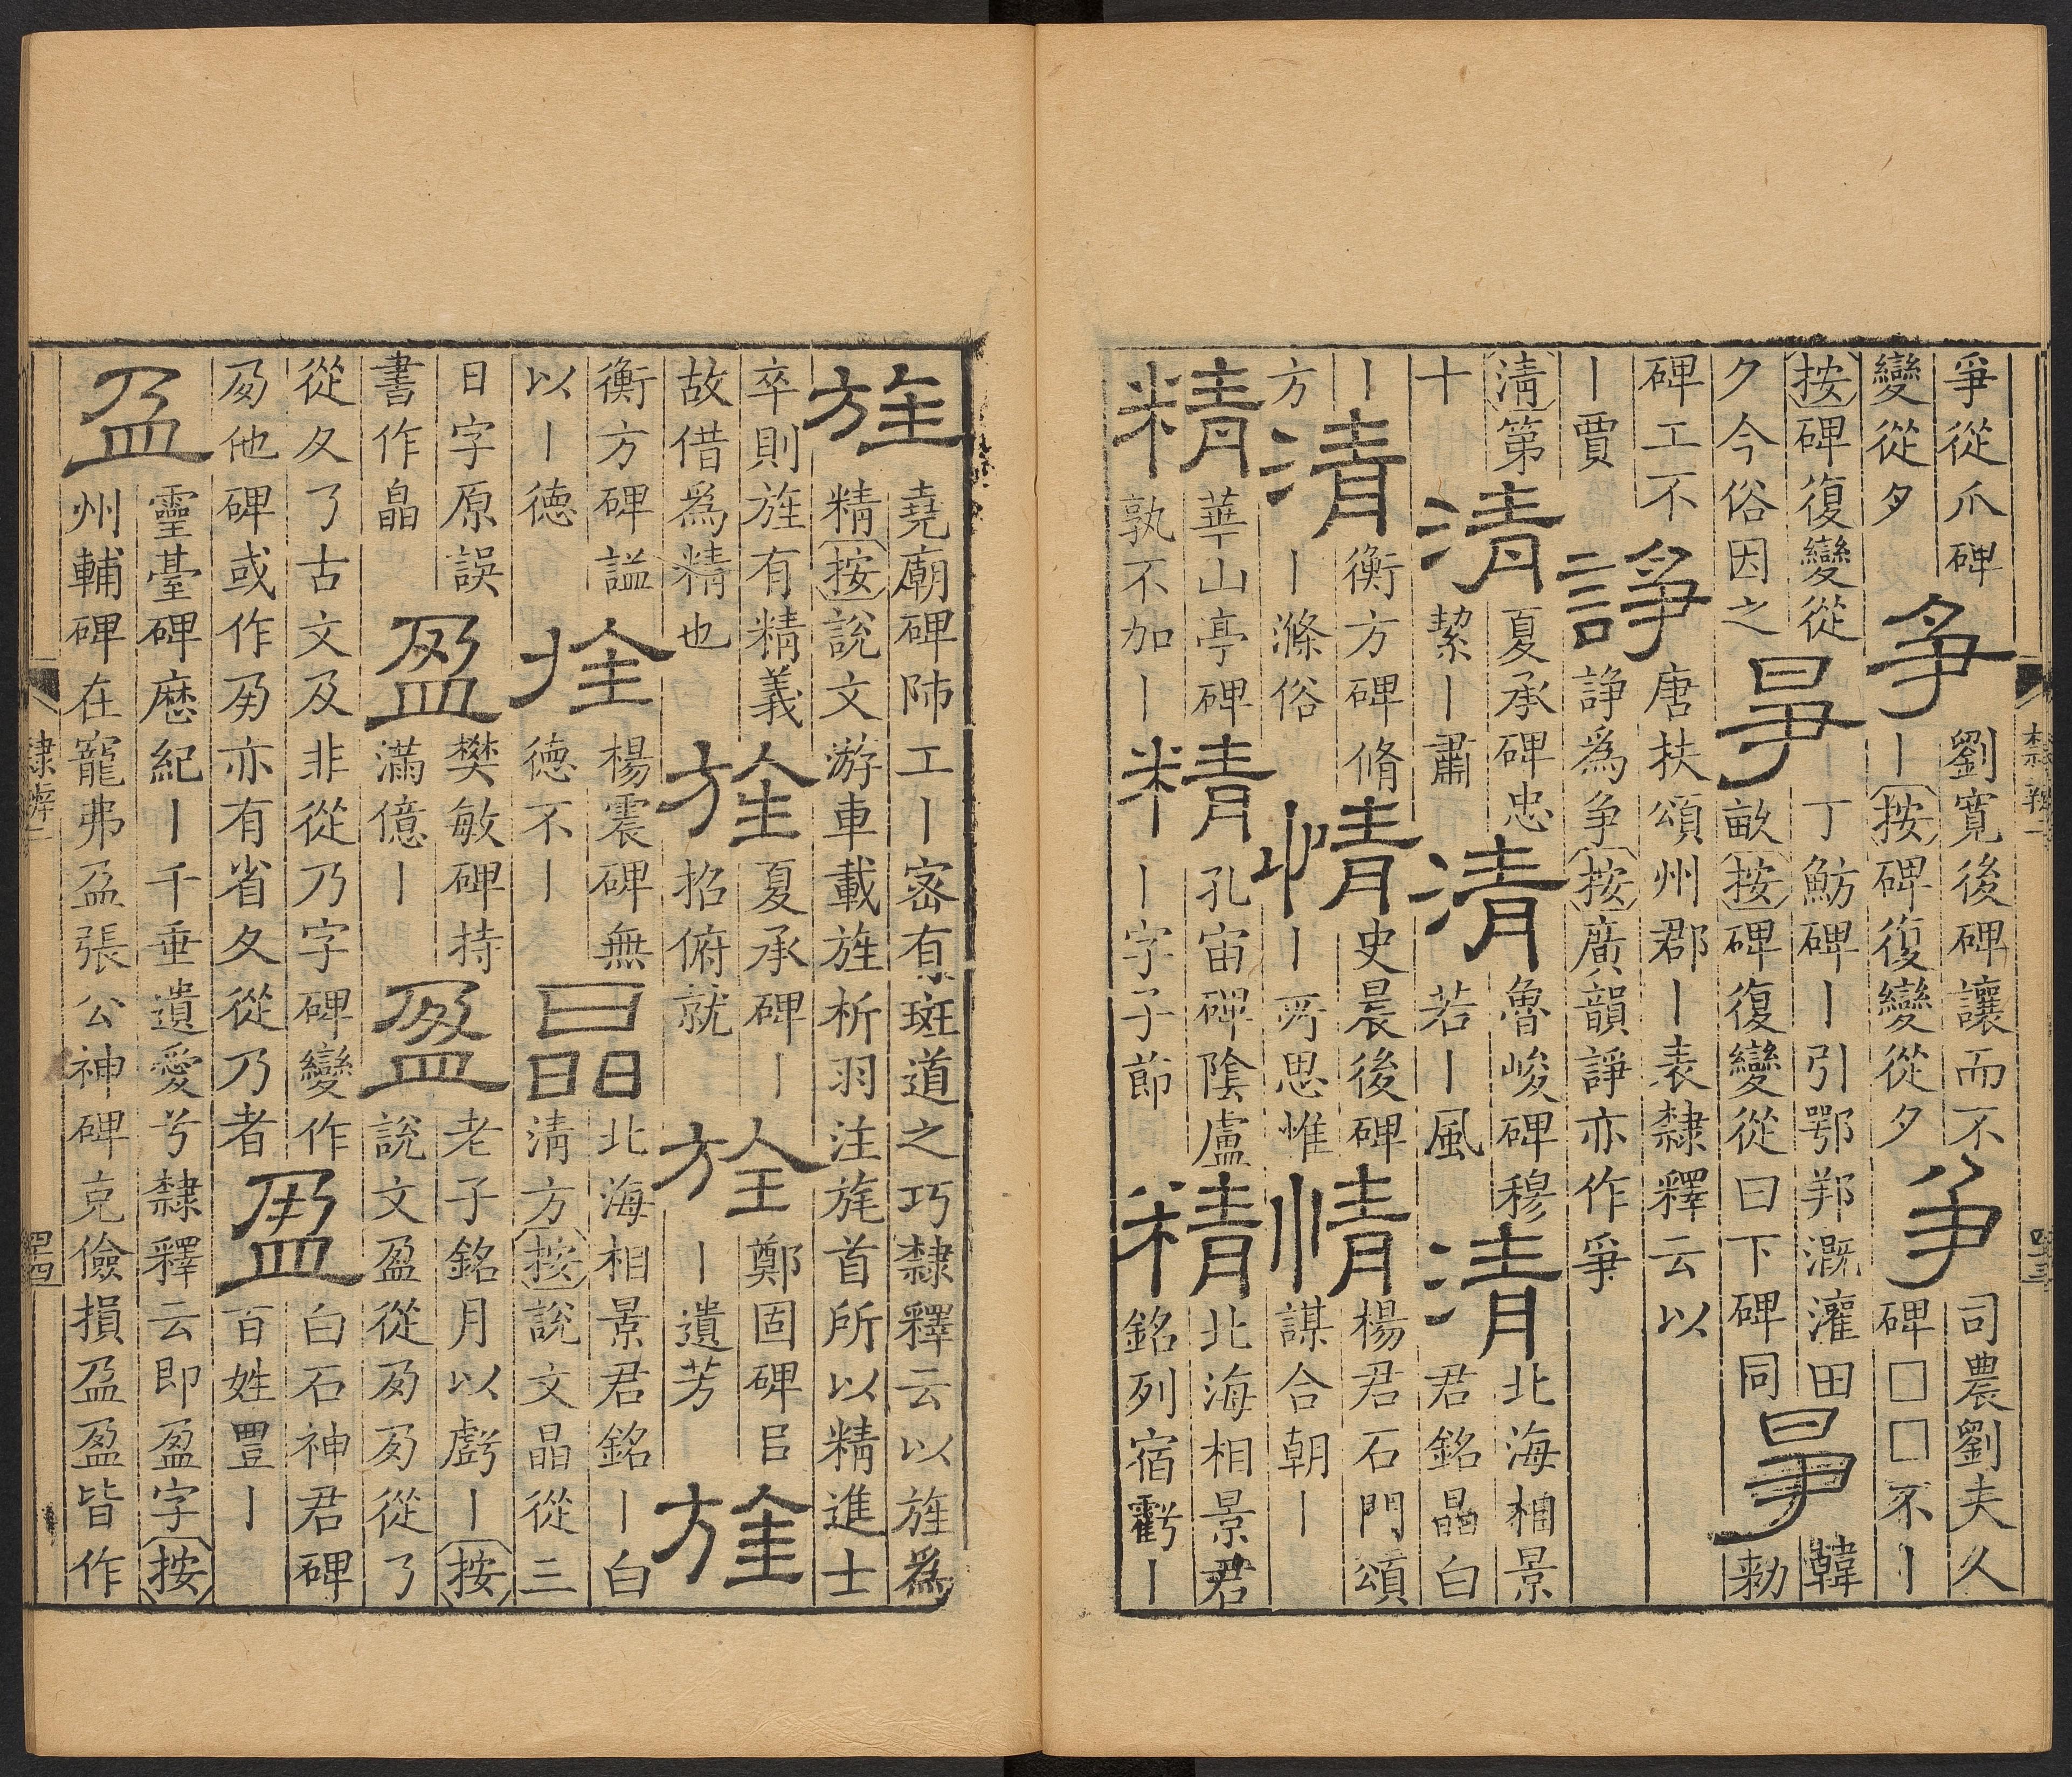 隸辨二
四十三
爭從爪碑
變從夕
爭
劉寬後碑讓而不
丨按碑復變從夕
爭
司農劉夫久
碑□□不丨
按碑復變從
夕今俗因之
爭
丁魴碑丨引鄂邦溉灌田
畝按碑復變從曰下碑同
爭
韓
勑
碑工不
丨賈
諍
唐扶頌州郡丨表隸釋云以
諍為争按廣韻諍亦作爭
清第
十
清
夏承碑忠
絜丨肅
清
魯峻碑穆
若丨風
清
北海相景
君銘皛白
丨
方
清
衡方碑脩
丨滌俗
情
史晨後碑
丨所思惟
情
楊君石門頌
謀合朝丨
精
華山亭碑
孰不加丨
精
孔宙碑陰盧
丨字子節
精
北海相景君
銘列宿虧丨
旌
堯廟碑師工丨密有斑道之巧隸釋云以旌爲
精按說文游車載旌析羽注旄首所以精進士
卒則旌有精義
故借爲精也
旌
夏承碑丨
招俯就
旌
鄭固碑㠯
丨遺芳
旌
衡方碑謚
以丨德
旌
楊震碑無
德不丨
晶
北海相景君銘丨白
清方按說文晶從三
日字原誤
書作皛
盈
樊敏碑持
滿億丨
盈
老子銘月以虧丨按
說文盈從夃夃從了
從夂了古文及非從乃字碑變作
夃他碑或作亦有省夂從乃者
盈
白石神君碑
百姓豐丨
盈
靈臺碑歷紀丨千垂遺愛兮隸釋云即盈字按
州輔碑在寵弗盈張公神碑克儉損盈盈皆作
隸辨二
四十四